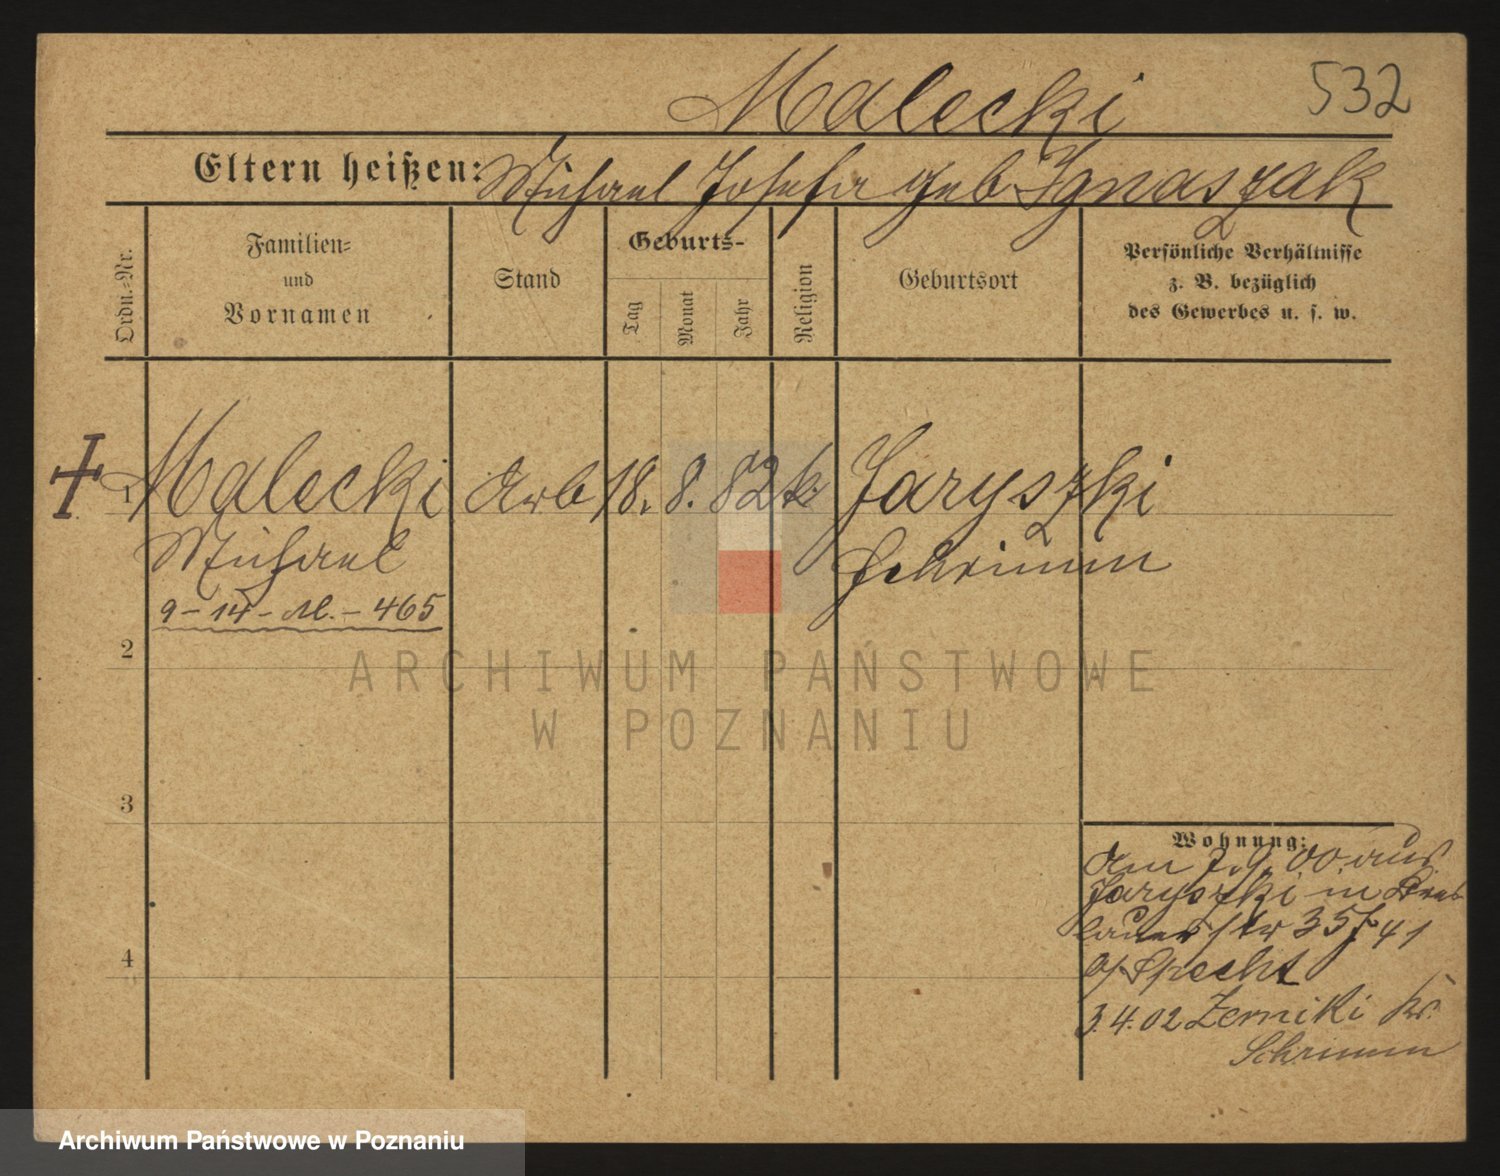 Malecki
532
Eltern heißen: Michael Josefa geb Ignaszak
Ordn.-Nr.
Familien- und Vornamen
Stand
Geburts-
Tag
Monat
Jahr
Religion
Geburtsort
Persönliche Verhältnisse
z. B. bezüglich
des Gewerbes u. s. w.
1 Malecki Arb 18. 8. 82 k. Jaryszki
Michael Schrimm
9-14-M.-465
2
ARCHIWUM PAŃSTWOWE
W POZNANIU
3
Wohnung:
Am 7.9.00 aus
Jaryszki in Bres
lauerstr 35 41
Specht
4
3.4.02 Zerniki Kr.
Schrimm
Archiwum Państwowe w Poznaniu